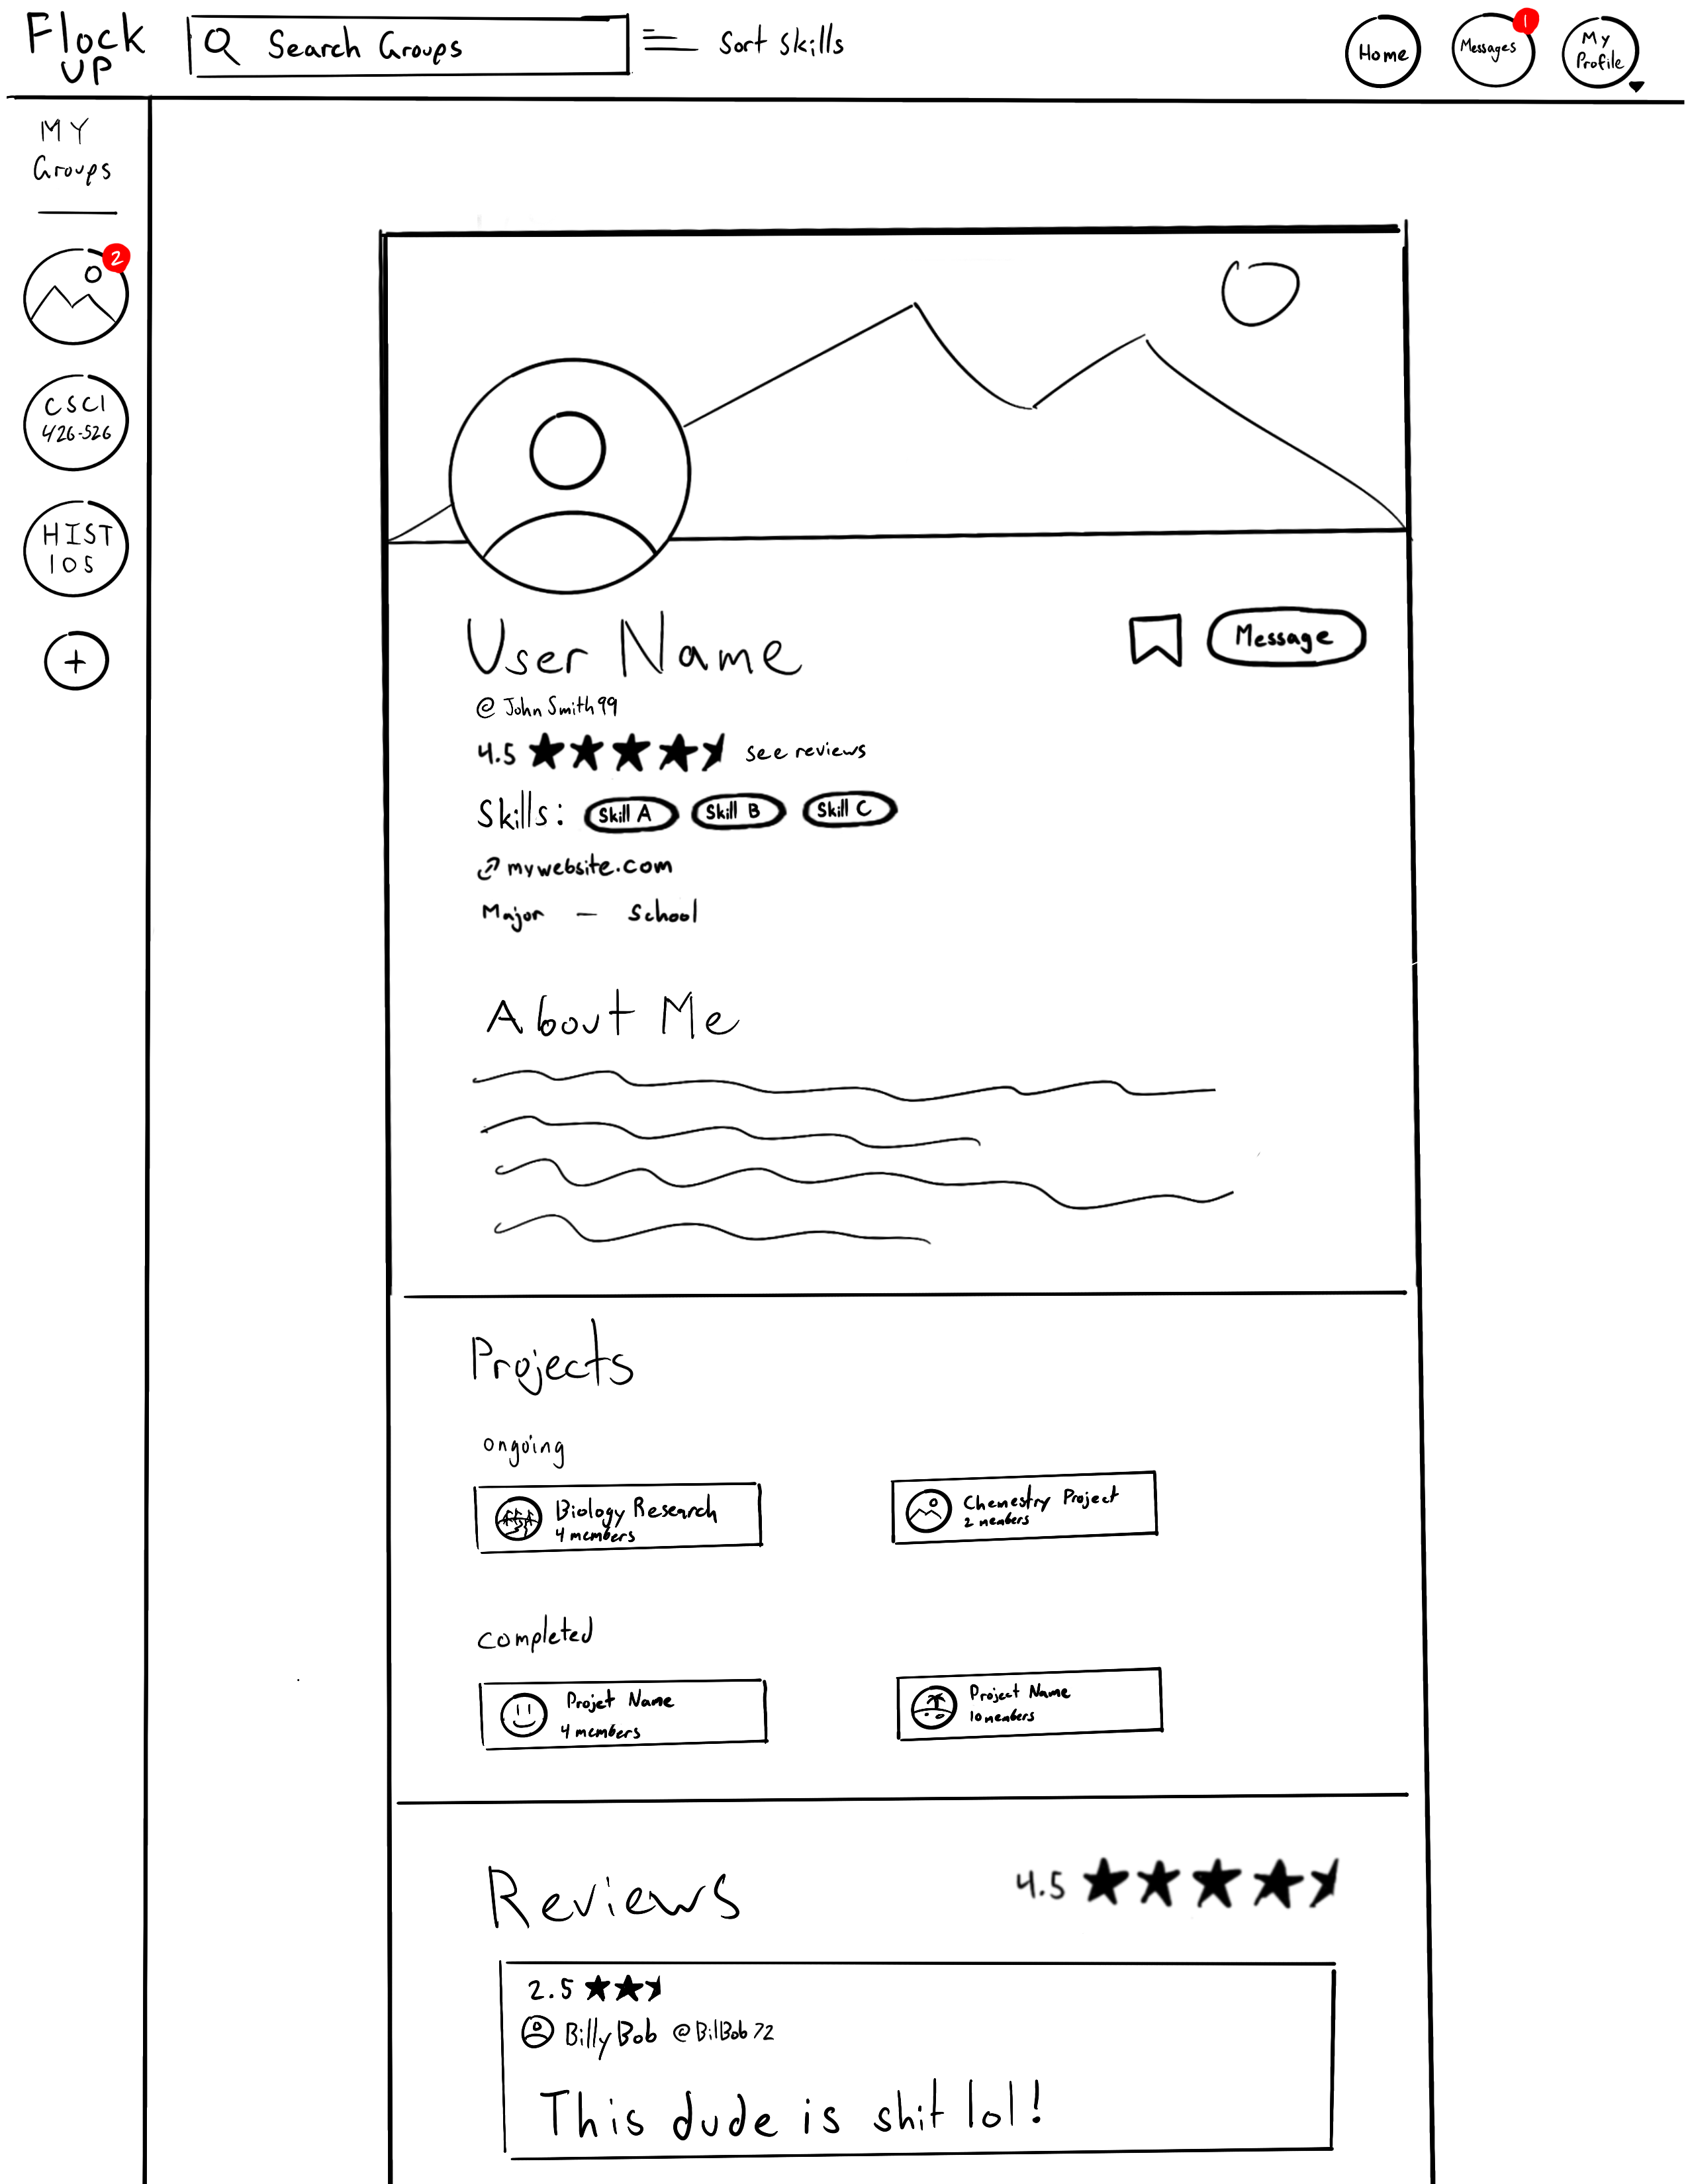 Flock
UP
Search Groups
Sort Skills
Home
Messages
1
My
Profile
MY
Groups
2
CSCI
426-526
HIST
105
+
User Name
Message
@JohnSmith99
4.5 see reviews
Skills: Skill A Skill B Skill C
mywebsite.com
Major — School
About Me
Projects
ongoing
Biology Research
4 members
Chemestry Project
2 members
completed
Projet Name
4 members
Project Name
10 members
Reviews 4.5
2.5
BillyBob @BilBob72
This dude is shit lol!